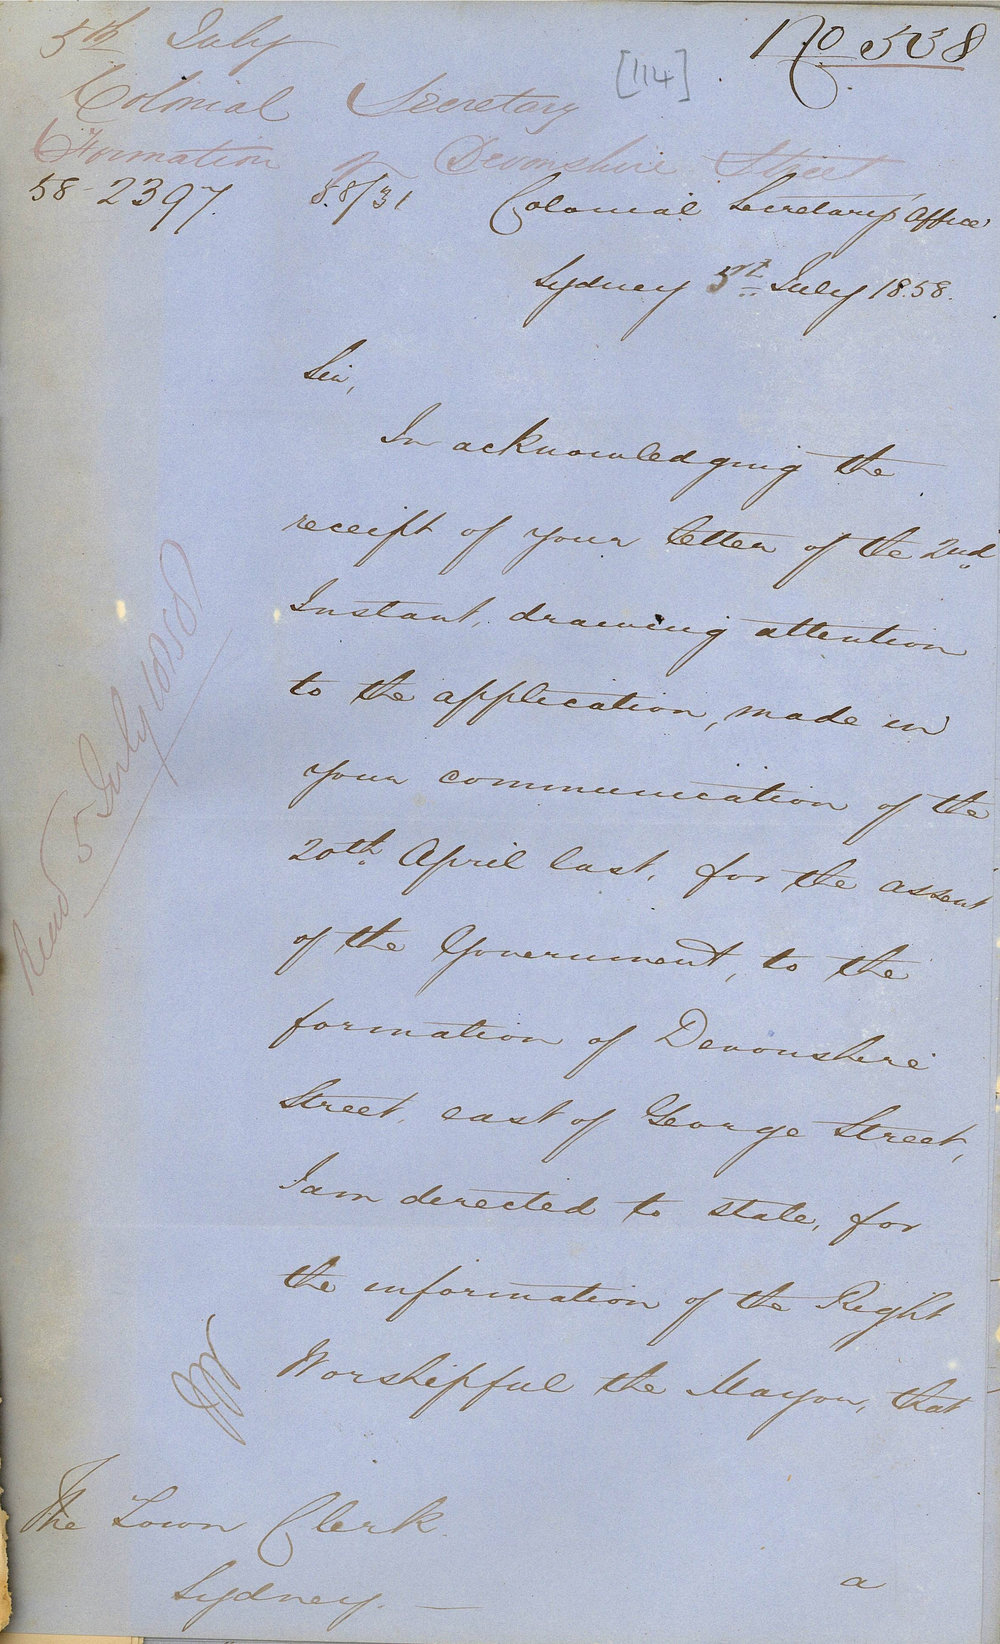 5th July
No 538
[114]
Colonial Secretary
Formation of Devonshire Street
58-2397. 58/31 Colonial Secretary's Office
Sydney 5th July 1858.
Sir,
In acknowledging the
receipt of your letter of the 2nd
Instant, drawing attention
to the application, made in
your communication of the
20th April last, for the assent
of the Government, to the
formation of Devonshire
Street, east of George Street,
I am directed to state, for
the information of the Right
Worshipful the Mayor, that
Recd 5 July 1858
The Town Clerk
Sydney.
a